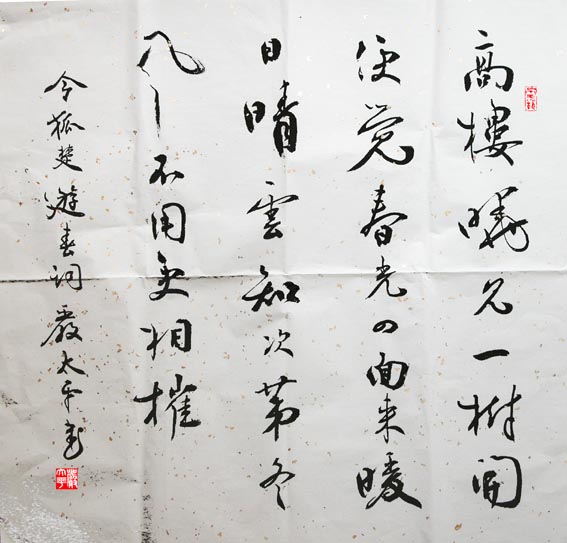 高樓曉見一樹開
便觉春光四面来暖
日晴雲知次第冬
风不用更相摧
令狐楚遊春词嚴太平書